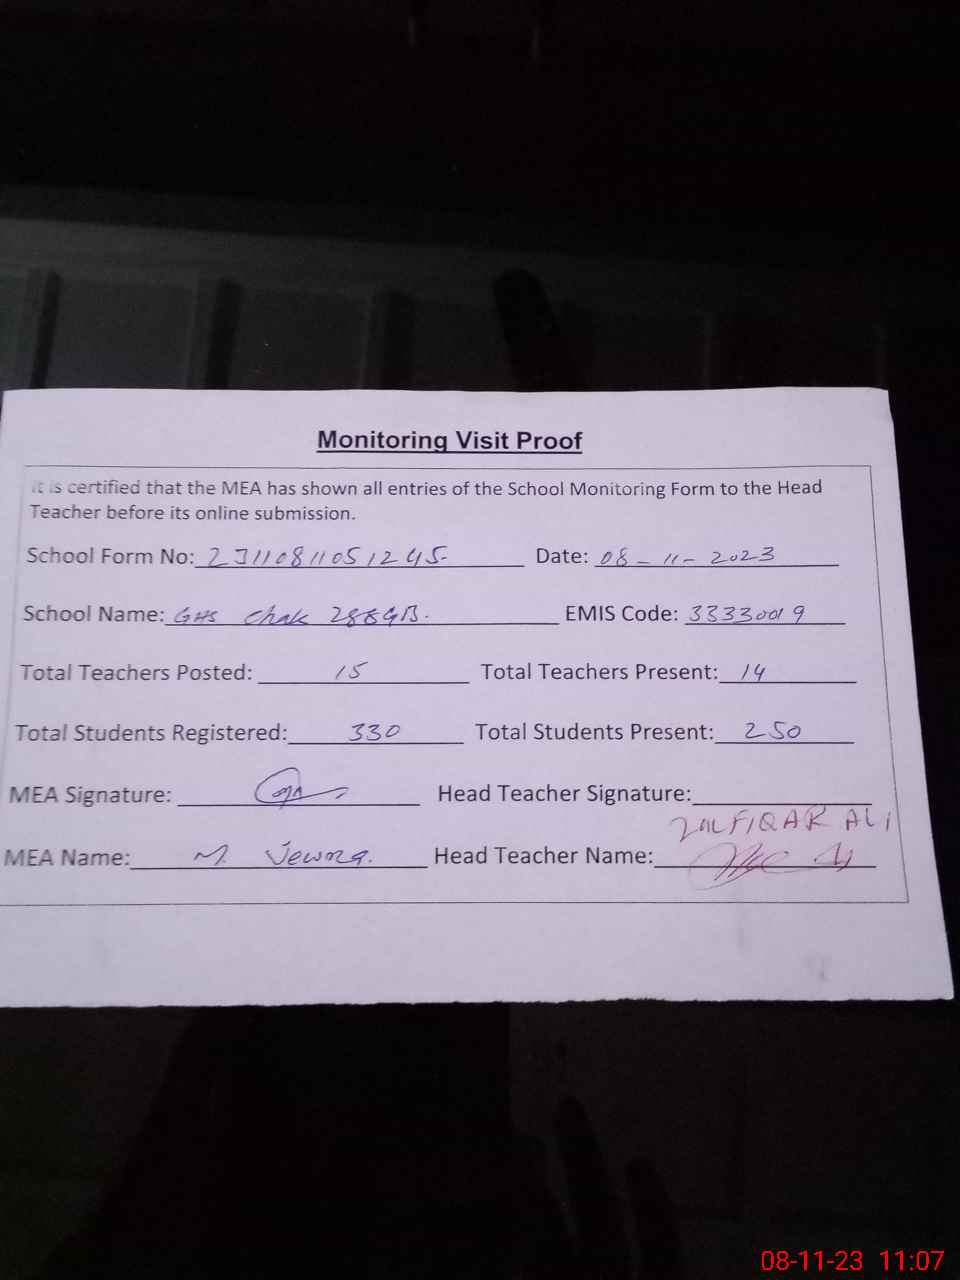 Monitoring Visit Proof
It is certified that the MEA has shown all entries of the School Monitoring Form to the Head
Teacher before its online submission.
School Form No: 23110811051245 Date: 08-11-2023
School Name: GHS Chak 288GB. EMIS Code: 33330019
Total Teachers Posted: 15 Total Teachers Present: 14
Total Students Registered: 330 Total Students Present: 250
MEA Signature: Head Teacher Signature:
ZULFIQAR ALI
MEA Name: M. Head Teacher Name:
08-11-23 11:07